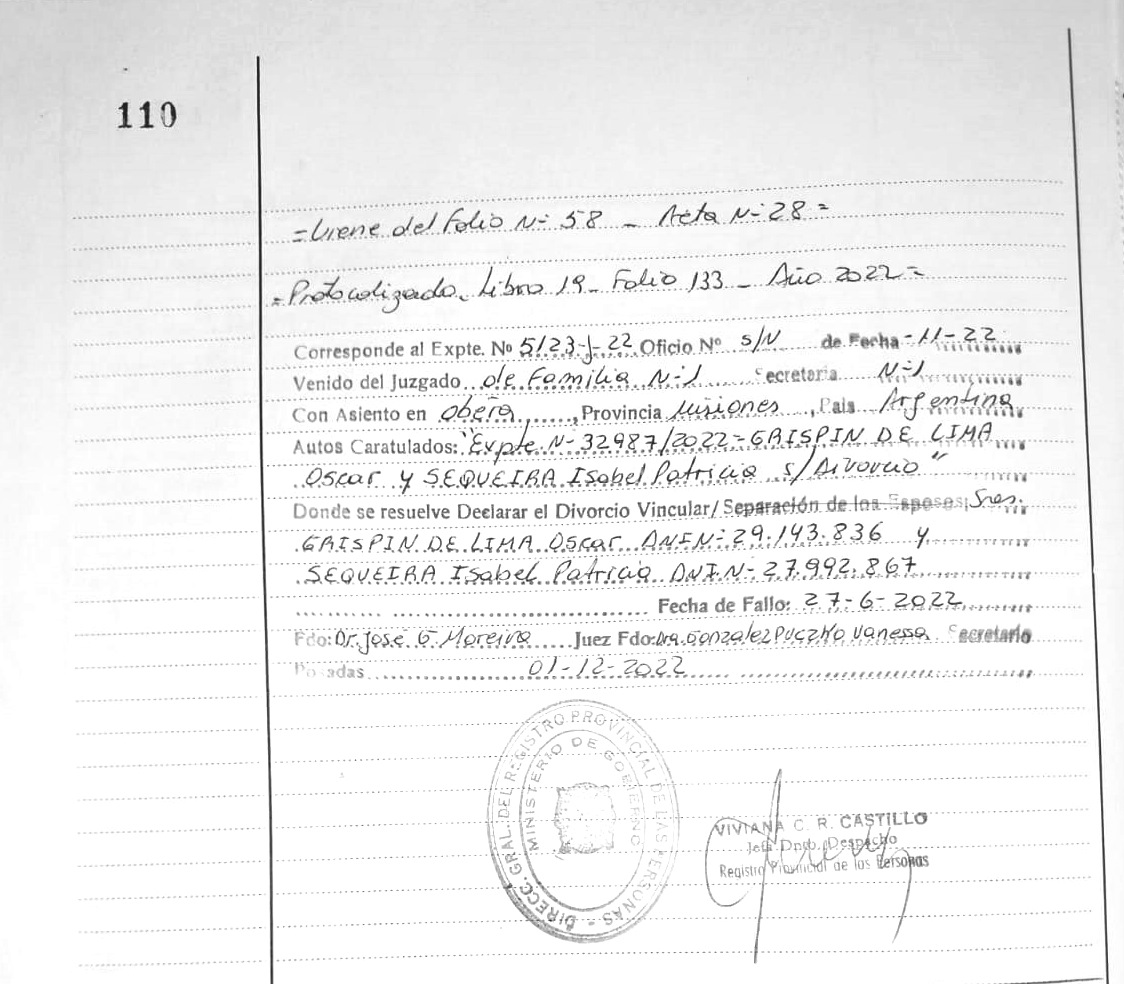 110
=Viene del Folio N- 58 - Acta N- 28=
=Protocolizado. Libro 19- Folio 133 - Año 2022=
Corresponde al Expte. Nº 5123-J-22 Oficio Nº s/N de Fecha -11-22
Venido del Juzgado de Familia N-1 Secretaria N-1
Con Asiento en oberá, Provincia Misiones, Pais Argentina
Autos Caratulados: "Expte N- 32987/2022- GRISPIN DE LIMA
Oscar y SEQUEIRA Isabel Patricia s/Divorcio"
Donde se resuelve Declarar el Divorcio Vincular/ Separación de los Esposos; Sres.
GRISPIN DE LIMA Oscar DNIN- 29.143.836 y
SEQUEIRA Isabel Patricia DNIN- 27.992.867
Fecha de Fallo: 27-6-2022
Fdo: Dr. José G. Moreira Juez Fdo: Dra. Gonzalez Puczko Vanessa Secretario
Posadas 01-12-2022
DIRECC. GRAL. DEL REGISTRO PROVINCIAL DE LAS PERSONAS -
MINISTERIO DE GOBIERNO
VIVIANA C. R. CASTILLO
Jefa Dpto. Despacho
Registro Provincial de las Personas